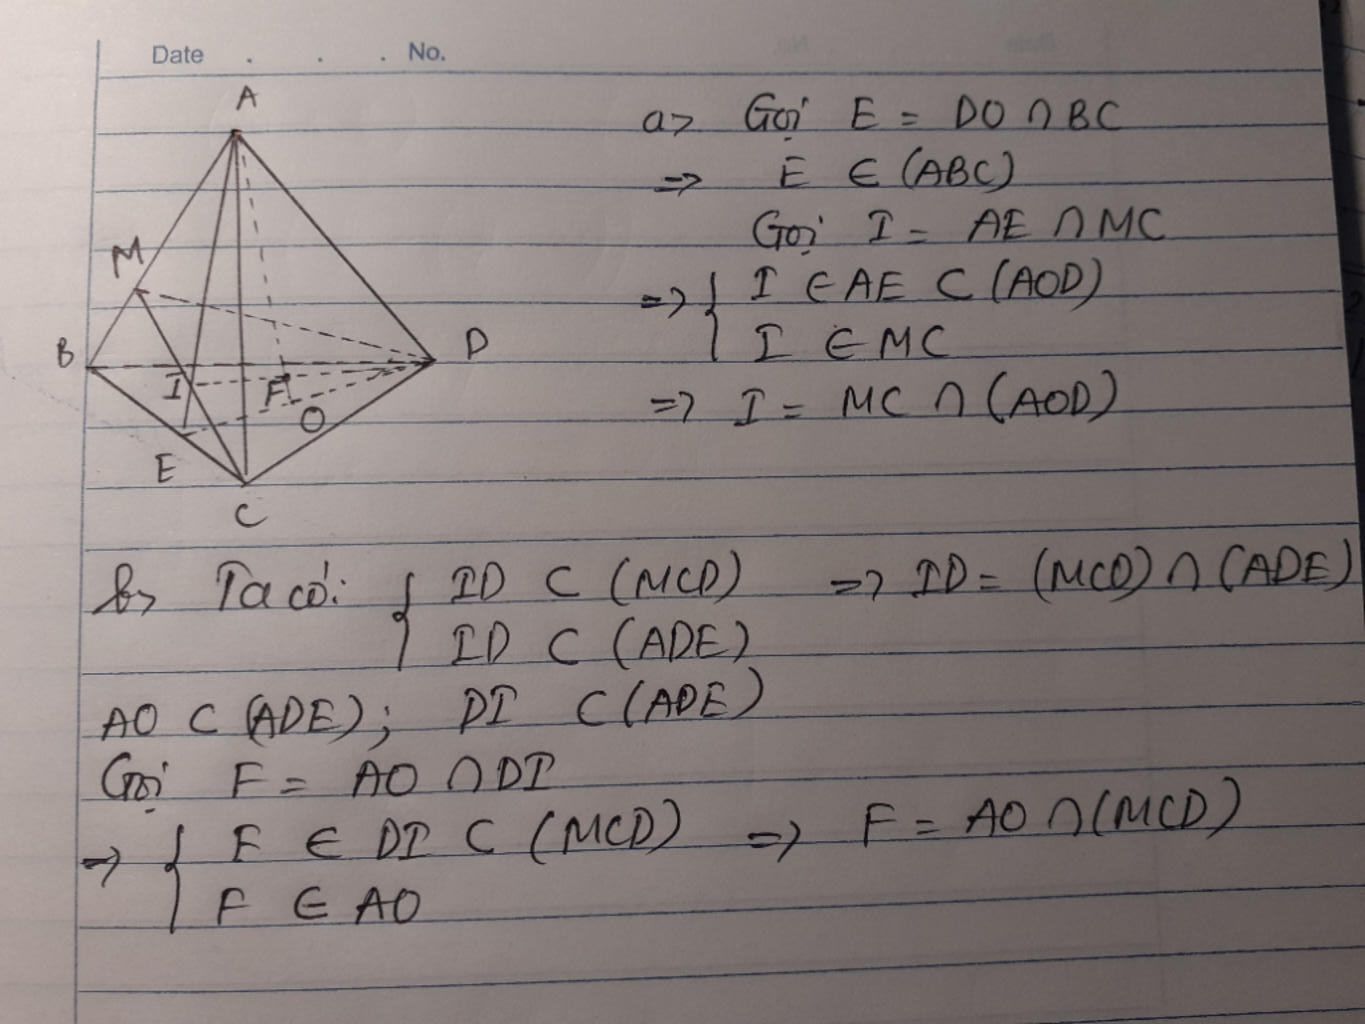 Date . . . No.
A
M
B
D
I
F
O
E
C
a> Gọi E = DO ∩ BC
=> E ∈ (ABC)
Gọi I = AE ∩ MC
=> { I ∈ AE ⊂ (AOD)
I ∈ MC
=> I = MC ∩ (AOD)
b> Ta có: { ID ⊂ (MCD) => ID = (MCD) ∩ (ADE)
ID ⊂ (ADE)
AO ⊂ (ADE); DI ⊂ (ADE)
Gọi F = AO ∩ DI
=> { F ∈ DI ⊂ (MCD) => F = AO ∩ (MCD)
F ∈ AO